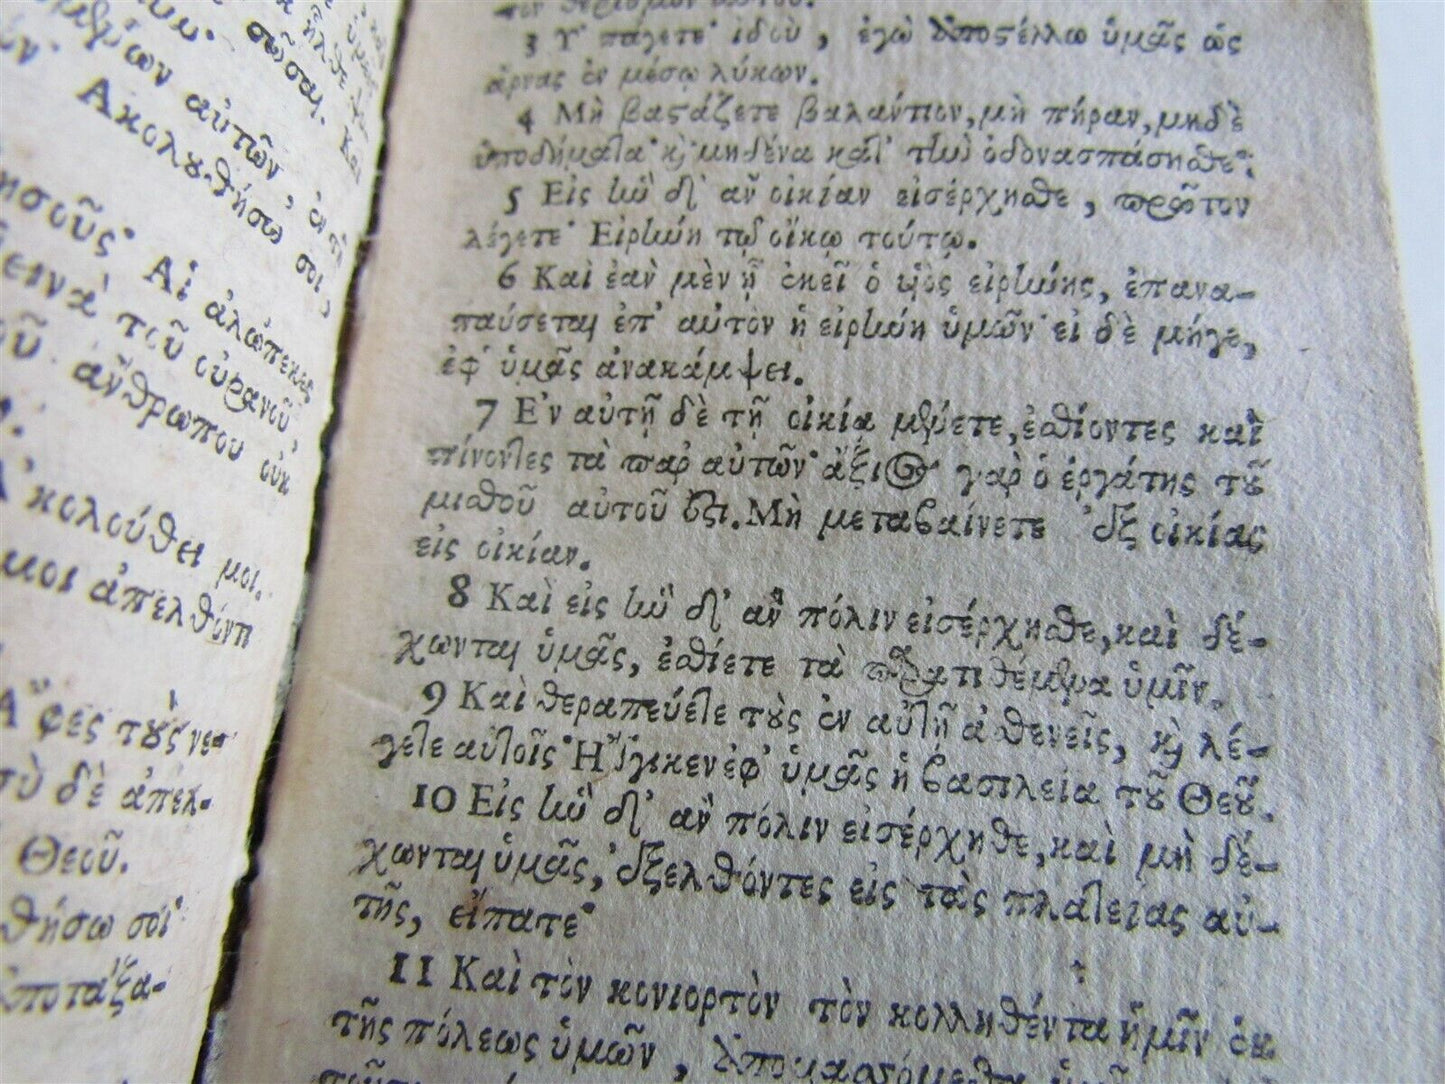 σῶσαι. Καὶ
αὐτῶν, ἐν τῇ
Ἀκολουθήσω σοι,
Αἱ ἀλώπεκες
τοῦ οὐρανοῦ,
ἀνθρώπου οὐκ
Ἀκολούθει μοι.
μοι ἀπελθόντι
Ἄφες τοὺς νε-
σὺ δὲ ἀπελ-
Θεοῦ.
θήσω σοι·
ἀποτάξα-
τὸν θερισμὸν αὐτοῦ.
3 Ὑπάγετε· ἰδοὺ, ἐγὼ ἀποστέλλω ὑμᾶς ὡς
ἄρνας ἐν μέσῳ λύκων.
4 Μὴ βαστάζετε βαλάντιον, μὴ πήραν, μηδὲ
ὑποδήματα· καὶ μηδένα κατὰ τὴν ὁδὸν ἀσπάσησθε.
5 Εἰς ἣν δ' ἂν οἰκίαν εἰσέρχησθε, πρῶτον
λέγετε· Εἰρήνη τῷ οἴκῳ τούτῳ.
6 Καὶ ἐὰν μὲν ᾖ ἐκεῖ ὁ υἱὸς εἰρήνης, ἐπανα-
παύσεται ἐπ' αὐτὸν ἡ εἰρήνη ὑμῶν· εἰ δὲ μήγε,
ἐφ' ὑμᾶς ἀνακάμψει.
7 Ἐν αὐτῇ δὲ τῇ οἰκίᾳ μένετε, ἐσθίοντες καὶ
πίνοντες τὰ παρ' αὐτῶν· ἄξιος γὰρ ὁ ἐργάτης τοῦ
μισθοῦ αὐτοῦ ἐστι. Μὴ μεταβαίνετε ἐξ οἰκίας
εἰς οἰκίαν.
8 Καὶ εἰς ἣν δ' ἂν πόλιν εἰσέρχησθε, καὶ δέ-
χωνται ὑμᾶς, ἐσθίετε τὰ παρατιθέμενα ὑμῖν.
9 Καὶ θεραπεύετε τοὺς ἐν αὐτῇ ἀσθενεῖς, καὶ λέ-
γετε αὐτοῖς· Ἤγγικεν ἐφ' ὑμᾶς ἡ βασιλεία τοῦ Θεοῦ.
10 Εἰς ἣν δ' ἂν πόλιν εἰσέρχησθε, καὶ μὴ δέ-
χωνται ὑμᾶς, ἐξελθόντες εἰς τὰς πλατείας αὐ-
τῆς, εἴπατε·
11 Καὶ τὸν κονιορτὸν τὸν κολληθέντα ἡμῖν ἐκ
τῆς πόλεως ὑμῶν, ἀπομασσόμεθα